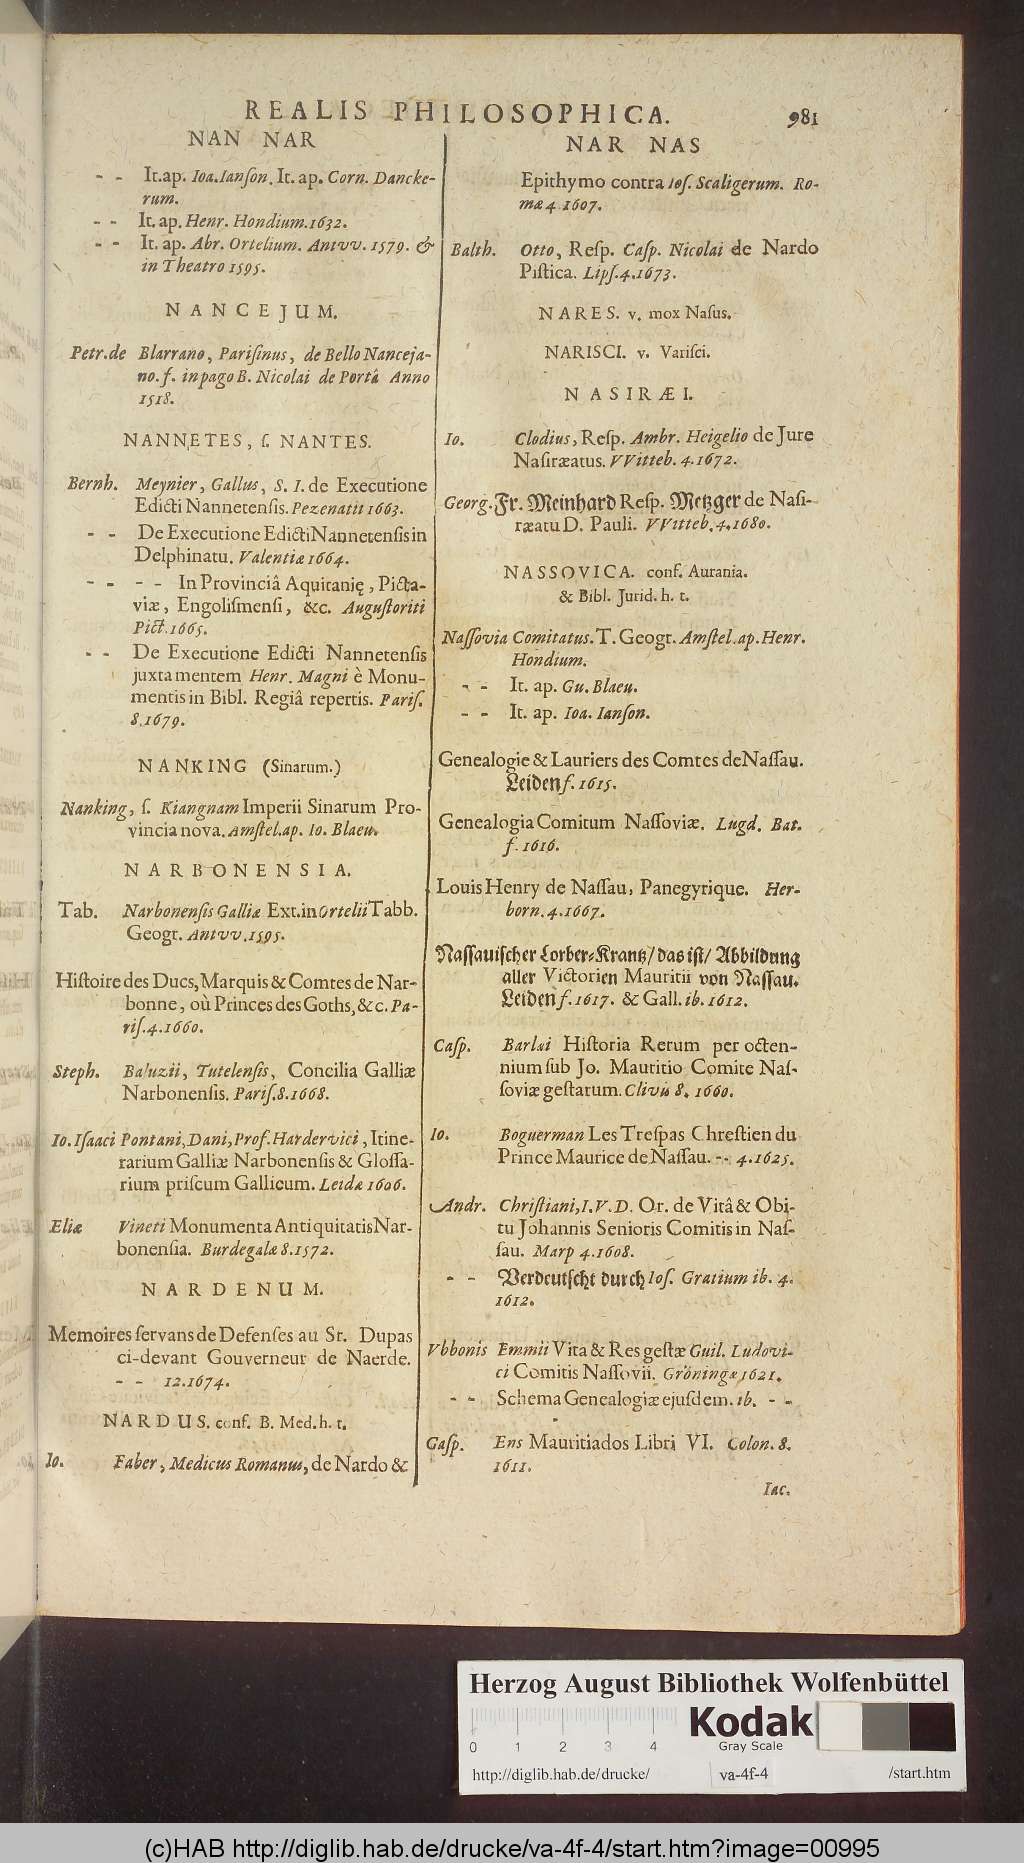 REALIS PHILOSOPHICA. 981
NAN NAR
- - It.ap. Ioa.Ianſon. It. ap. Corn. Dancke-
rum.
- - It. ap. Henr. Hondium.1632.
- - It. ap. Abr. Ortelium. Antvv. 1579. &
in Theatro 1595.
NANCEJUM.
Petr.de Blarrano, Pariſinus, de Bello Nanceja-
no. f. in pago B. Nicolai de Portâ Anno
1518.
NANNETES, ſ. NANTES.
Bernh. Meynier, Gallus, S. I. de Executione
Edicti Nannetenſis. Pezenatii 1663.
- - De Executione Edicti Nannetenſis in
Delphinatu. Valentiæ 1664.
- - - - In Provinciâ Aquitanię, Picta-
viæ, Engoliſmenſi, &c. Auguſtoriti
Pict.1665.
- - De Executione Edicti Nannetenſis
juxta mentem Henr. Magni è Monu-
mentis in Bibl. Regiâ repertis. Pariſ.
8.1679.
NANKING (Sinarum.)
Nanking, ſ. Kiangnam Imperii Sinarum Pro-
vincia nova. Amſtel.ap. Io. Blaeu.
NARBONENSIA.
Tab. Narbonenſis Galliæ Ext.in Ortelii Tabb.
Geogr. Antvv.1595.
Hiſtoire des Ducs, Marquis & Comtes de Nar-
bonne, où Princes des Goths, &c. Pa-
riſ.4.1660.
Steph. Baluzii, Tutelenſis, Concilia Galliæ
Narbonenſis. Pariſ.8.1668.
Io. Iſaaci Pontani, Dani, Prof. Hardervici, Itine-
rarium Galliæ Narbonenſis & Gloſſa-
rium priſcum Gallicum. Leidæ 1606.
Eliæ Vineti Monumenta Antiquitatis Nar-
bonenſia. Burdegalæ 8.1572.
NARDENUM.
Memoires ſervans de Defenſes au Sr. Dupas
ci-devant Gouverneur de Naerde.
- - 12.1674.
NARDUS. conf. B. Med. h. t.
Io. Faber, Medicus Romanus, de Nardo &
NAR NAS
Epithymo contra Ioſ. Scaligerum. Ro-
mæ 4 1607.
Balth. Otto, Reſp. Caſp. Nicolai de Nardo
Piſtica. Lipſ.4.1673.
NARES. v. mox Naſus.
NARISCI. v. Variſci.
NASIRÆI.
Io. Clodius, Reſp. Ambr. Heigelio de Jure
Naſiræatus. VVitteb. 4.1672.
Georg. Fr. Meinhard Reſp. Metzger de Naſi-
ræatu D. Pauli. VVitteb. 4.1680.
NASSOVICA. conf. Aurania.
& Bibl. Jurid. h. t.
Naſſovia Comitatus. T. Geogr. Amſtel.ap. Henr.
Hondium.
- - It. ap. Gu. Blaeu.
- - It. ap. Ioa. Ianſon.
Genealogie & Lauriers des Comtes de Naſſau.
Leiden f. 1615.
Genealogia Comitum Naſſoviæ. Lugd. Bat.
f. 1616.
Louis Henry de Naſſau, Panegyrique. Her-
born. 4.1667.
Naſſauiſcher Lorber-Krantz/ das iſt/ Abbildung
aller Victorien Mauritii von Naſſau.
Leiden f. 1617. & Gall. ib. 1612.
Caſp. Barlæi Hiſtoria Rerum per octen-
nium ſub Jo. Mauritio Comite Naſ-
ſoviæ geſtarum. Clivis 8. 1660.
Io. Boguerman Les Treſpas Chreſtien du
Prince Maurice de Naſſau. -- 4.1625.
Andr. Chriſtiani, I.V.D. Or. de Vitâ & Obi-
tu Johannis Senioris Comitis in Naſ-
ſau. Marp 4.1608.
- - Verdeutſcht durch Ioſ. Gratium ib. 4.
1612.
Vbbonis Emmii Vita & Res geſtæ Guil. Ludovi-
ci Comitis Naſſovii. Gröningæ 1621.
- - Schema Genealogiæ ejuſdem. ib. - -
Gaſp. Ens Mauritiados Libri VI. Colon. 8.
1611.
Iac.
Herzog August Bibliothek Wolfenbüttel
Kodak
Gray Scale
0 1 2 3 4
http://diglib.hab.de/drucke/ va-4f-4 /start.htm
(c)HAB http://diglib.hab.de/drucke/va-4f-4/start.htm?image=00995